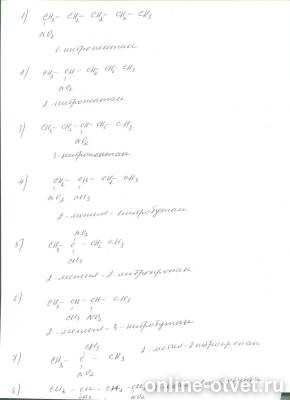 1) CH₂ – CH₂ – CH₂ – CH₂ – CH₃
NO₂
1-нитропентан
2) CH₃ – CH – CH₂ – CH₂ – CH₃
NO₂
2-нитропентан
3) CH₃ – CH₂ – CH – CH₂ – CH₃
NO₂
3-нитропентан
4) CH₂ – CH – CH₂ – CH₃
NO₂ CH₃
2-метил-1нитробутан
NO₂
5) CH₃ – C – CH₂ – CH₃
CH₃
2-метил-2-нитропропан
6) CH₃ – CH – CH – CH₃
CH₃ NO₂
2-метил-3-нитробутан
CH₃
7) CH₃ – C – CH₃
NO₂
2-метил-2нитропропан
8) CH₃ – CH – CH₂
online-otvet.ru